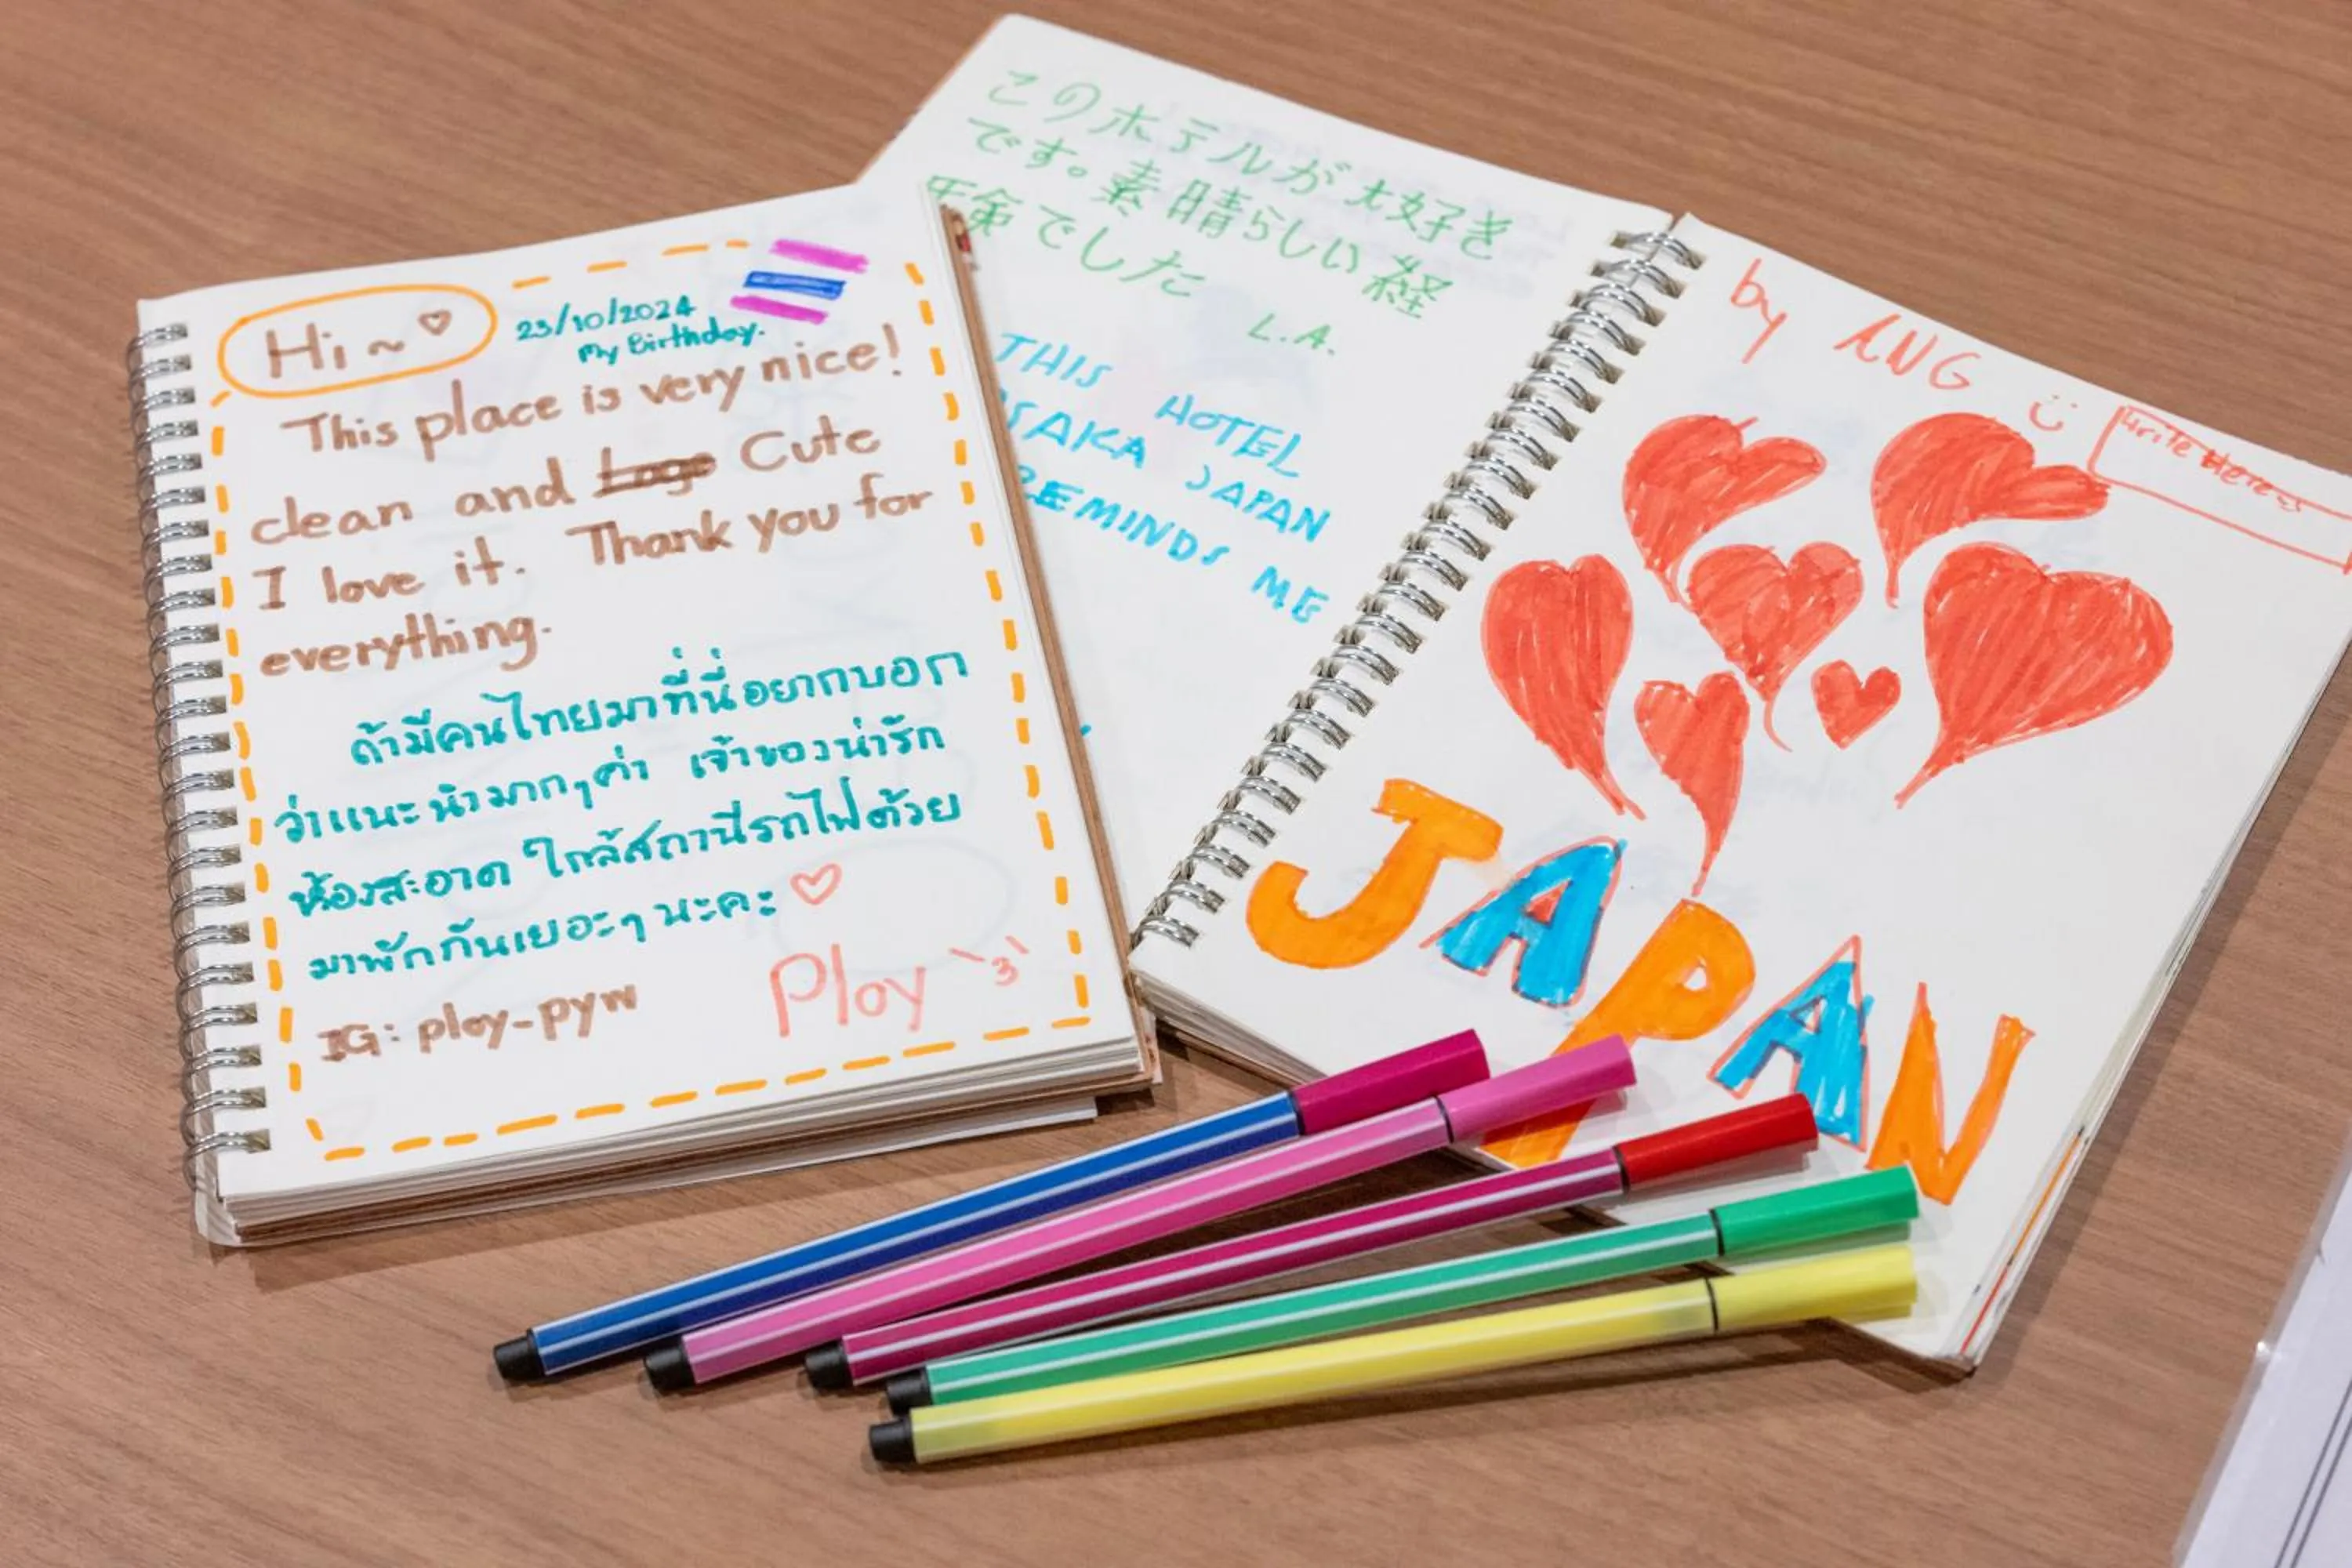 Hi ~ ♡
23/10/2024
My Birthday.
This place is very nice!
clean and Cute
I love it. Thank you for
everything.
ถ้ามีคนไทยมาที่นี่อยากบอก
ว่าแนะนำมากๆค่า เจ้าของน่ารัก
ห้องสะอาด ใกล้สถานีรถไฟด้วย
มาพักกันเยอะๆ นะคะ ♡
IG: ploy-pyw
Ploy
このホテルが大好き
です。素晴らしい経
験でした
L.A.
THIS HOTEL
SAKA JAPAN
REMINDS ME
by ANG
Write Here
JAPAN